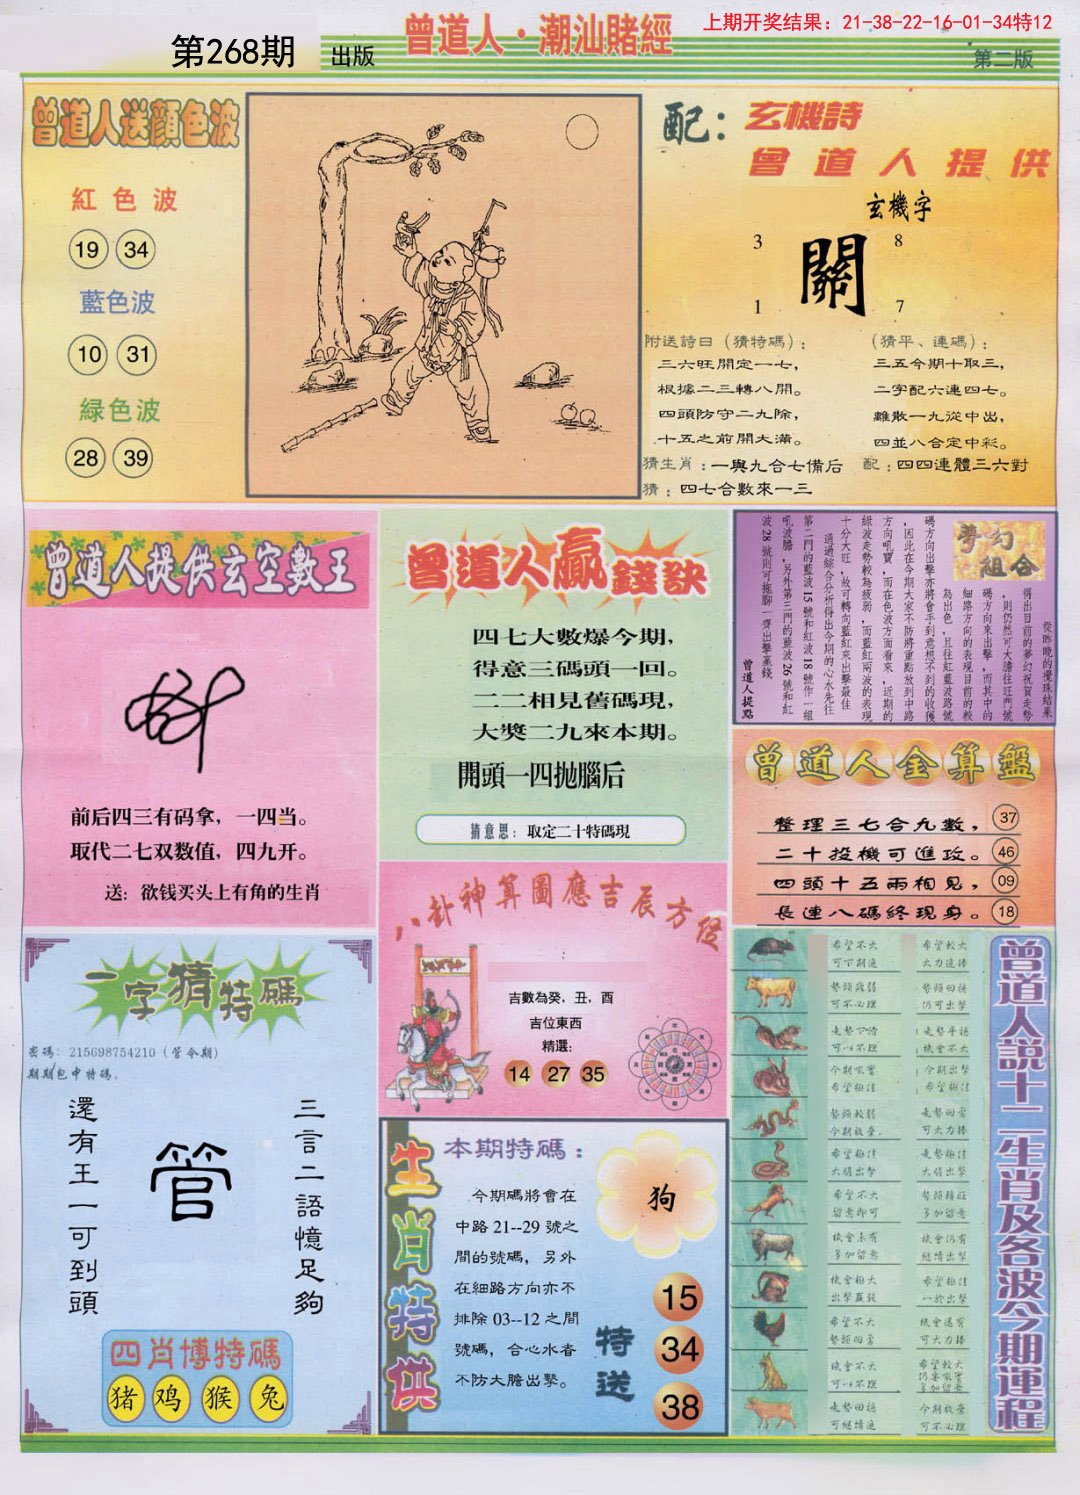 上期开奖结果：21-38-22-16-01-34特12
第268期
出版
曾道人·潮汕賭經
第二版
曾道人送顔色波
紅色波
19 34
藍色波
10 31
緑色波
28 39
配：玄機詩
曾道人提供
玄機字
3 8
關
1 7
附送詩曰（猜特碼）：
三六旺開定一七，
根據二三轉八開。
四頭防守二九除，
十五之前開大滿。
（猜平、連碼）：
三五今期十取三，
二字配六連四七。
離散一九從中出，
四並八合定中彩。
猜生肖：一與九合七備后
配：四四連體三六對
猜：四七合數來一三
曾道人提供玄空數王
前后四三有码拿，一四当。
取代二七双数值，四九开。
送：欲钱买头上有角的生肖
曾道人贏錢訣
四七大數爆今期，
得意三碼頭一回。
二二相見舊碼現，
大獎二九來本期。
開頭一四抛腦后
猜意思：取定二十特碼現
夢幻組合
從昨晚的攪珠結果
得出目前的夢幻祝賀走勢
，則仍然可大膽往旺門號
碼方向來出擊，而其中的
細路方向的表現目前的較
為出色，且往紅藍波路號
碼方向出擊亦將會手到意想不到的收獲
，因此在今期大家不防將重點放到中路
方向吼寶，而在色波方面看來，近期的
綠波走勢較為疲弱，而藍紅兩波的表現
十分大旺，故可轉向藍紅來出擊最佳
通過綜合分析得出今期的心水先往
第二門的藍波15號和紅波18號作一組
吼波膽，另外第三門的藍波26號和紅
波28號則可拖腳一齊出擊贏錢
曾道人提點
曾道人金算盤
整理三七合九數， 37
二十投機可進攻。 46
四頭十五兩相見， 09
長連八碼終現身。 18
八卦神算圖應吉辰方位
吉數為癸，丑，酉
吉位東西
精選：
14 27 35
一字猜特碼
密碼：215698754210（管今期）
期期包中特碼、
還有王一可到頭
管
三言二語憶足夠
四肖博特碼
猪 鸡 猴 兔
生肖特供
本期特碼：
今期碼將會在
中路21--29號之
間的號碼，另外
在細路方向亦不
排除03--12之間
號碼，合心水者
不防大膽出擊。
狗
特送
15
34
38
曾道人說十二生肖及各波今期運程
希望不大 希望較大
可下期追 大力追捧
勢頭疲弱 勢頭回揚
可不必理 仍可出擊
走勢下滑 走勢平穩
可以不理 機會不大
今期吼實 今期出擊
希望極佳 希望極佳
勢頭較弱 走勢回雲
今期放棄. 可大力捧
希望極佳 走勢極佳
大膽出擊 大膽出擊
希望不大 勢頭轉旺
留意即可 多加留意
機會未有 機會仍有
多加留意 繼續出擊
機會極大 希望極佳
出擊贏錢 一於出擊
希望不大 機會邁窄
勢頭回雲 可大力捧
機會不大 希望較大
可以不理 仍要吼實
多加留意
走勢回揚 今期放棄
可繼續追 可不必理